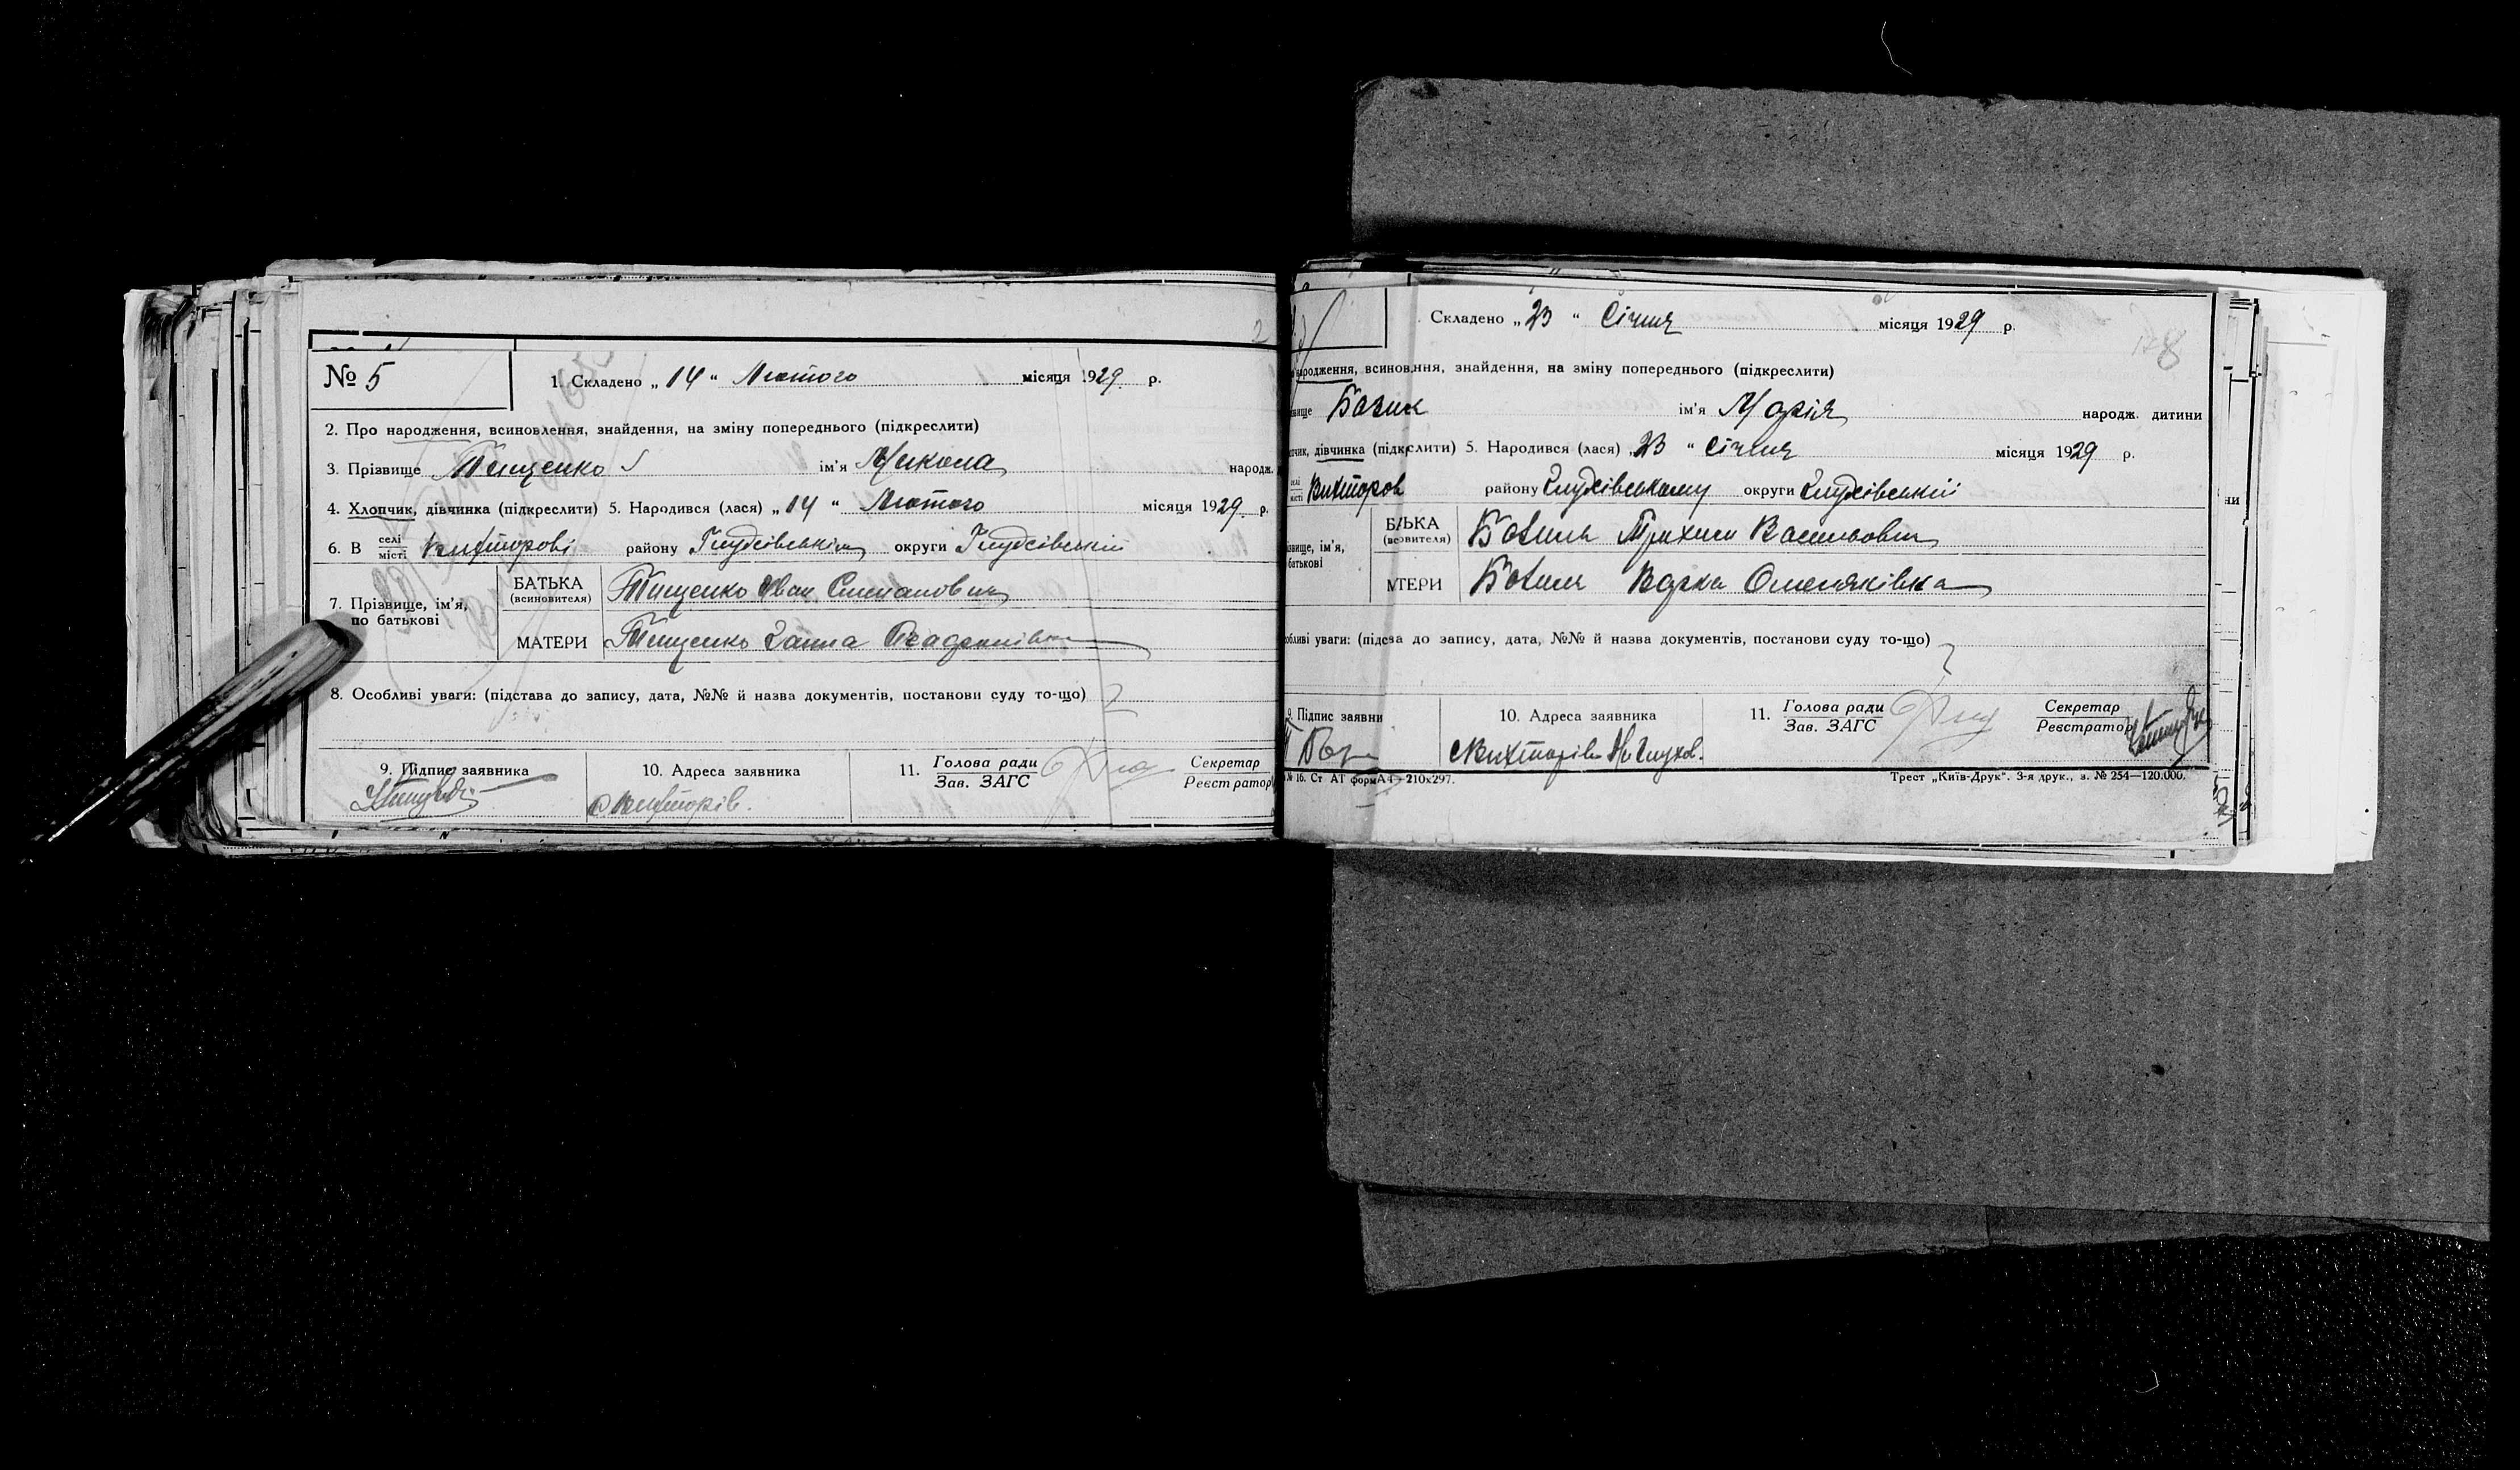 № 5
1. Складено „ 14 “ Лютого місяця 1929 р.
2. Про народження, всиновлення, знайдення, на зміну попереднього (підкреслити)
3. Прізвище Тищенко ім'я Микола народж.
4. Хлопчик, дівчинка (підкреслити) 5. Народився (лася) „ 14 “ Лютого місяця 1929 р.
6. В селі місті Вихторові району Глухівськім округи Глухівській
7. Прізвище, ім'я, по батькові
БАТЬКА (всиновителя) Тищенко Іван Степанович
МАТЕРИ Тищенко Ганна
8. Особливі уваги: (підстава до запису, дата, №№ й назва документів, постанови суду то-що)
9. Підпис заявника
10. Адреса заявника
с Вихторів.
11. Голова ради
Зав. ЗАГС
Секретар
Реєстратор
2
Складено „ 23 “ Січня місяця 1929 р.
народження, всиновлення, знайдення, на зміну попереднього (підкреслити)
ім'я Марія народж. дитини
дівчинка (підкреслити) 5. Народився (лася) „ 23 “ Січня місяця 1929 р.
селі місті Вихторов району Глухівському округи Глухівській
звище, ім'я,
батькові
БЬКА (всиновителя) Васильович
МТЕРИ Варка
обливі уваги: (підсва до запису, дата, №№ й назва документів, постанови суду то-що)
9. Підпис заявни
10. Адреса заявника
с Вихторів Глухов.
11. Голова ради
Зав. ЗАГС
Секретар
Реєстратор
№ 16. Ст АТ форм А4—210x297.
Трест „Київ-Друк“. 3-я друк., з. № 254—120.000.
ни